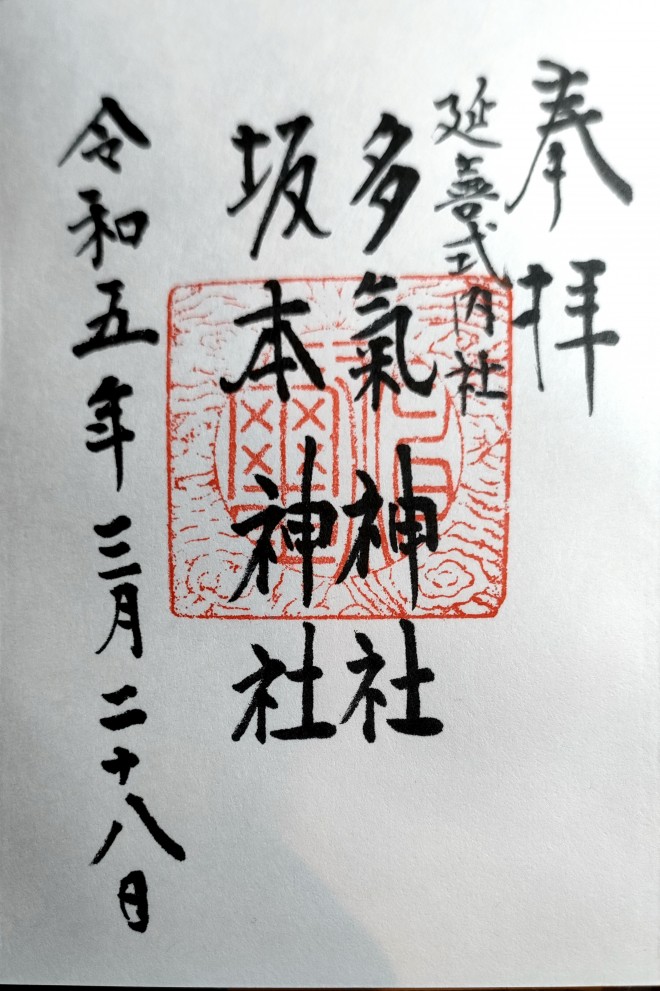 奉拝
延喜式内社
多氣神社
坂本神社
令和五年三月二十八日